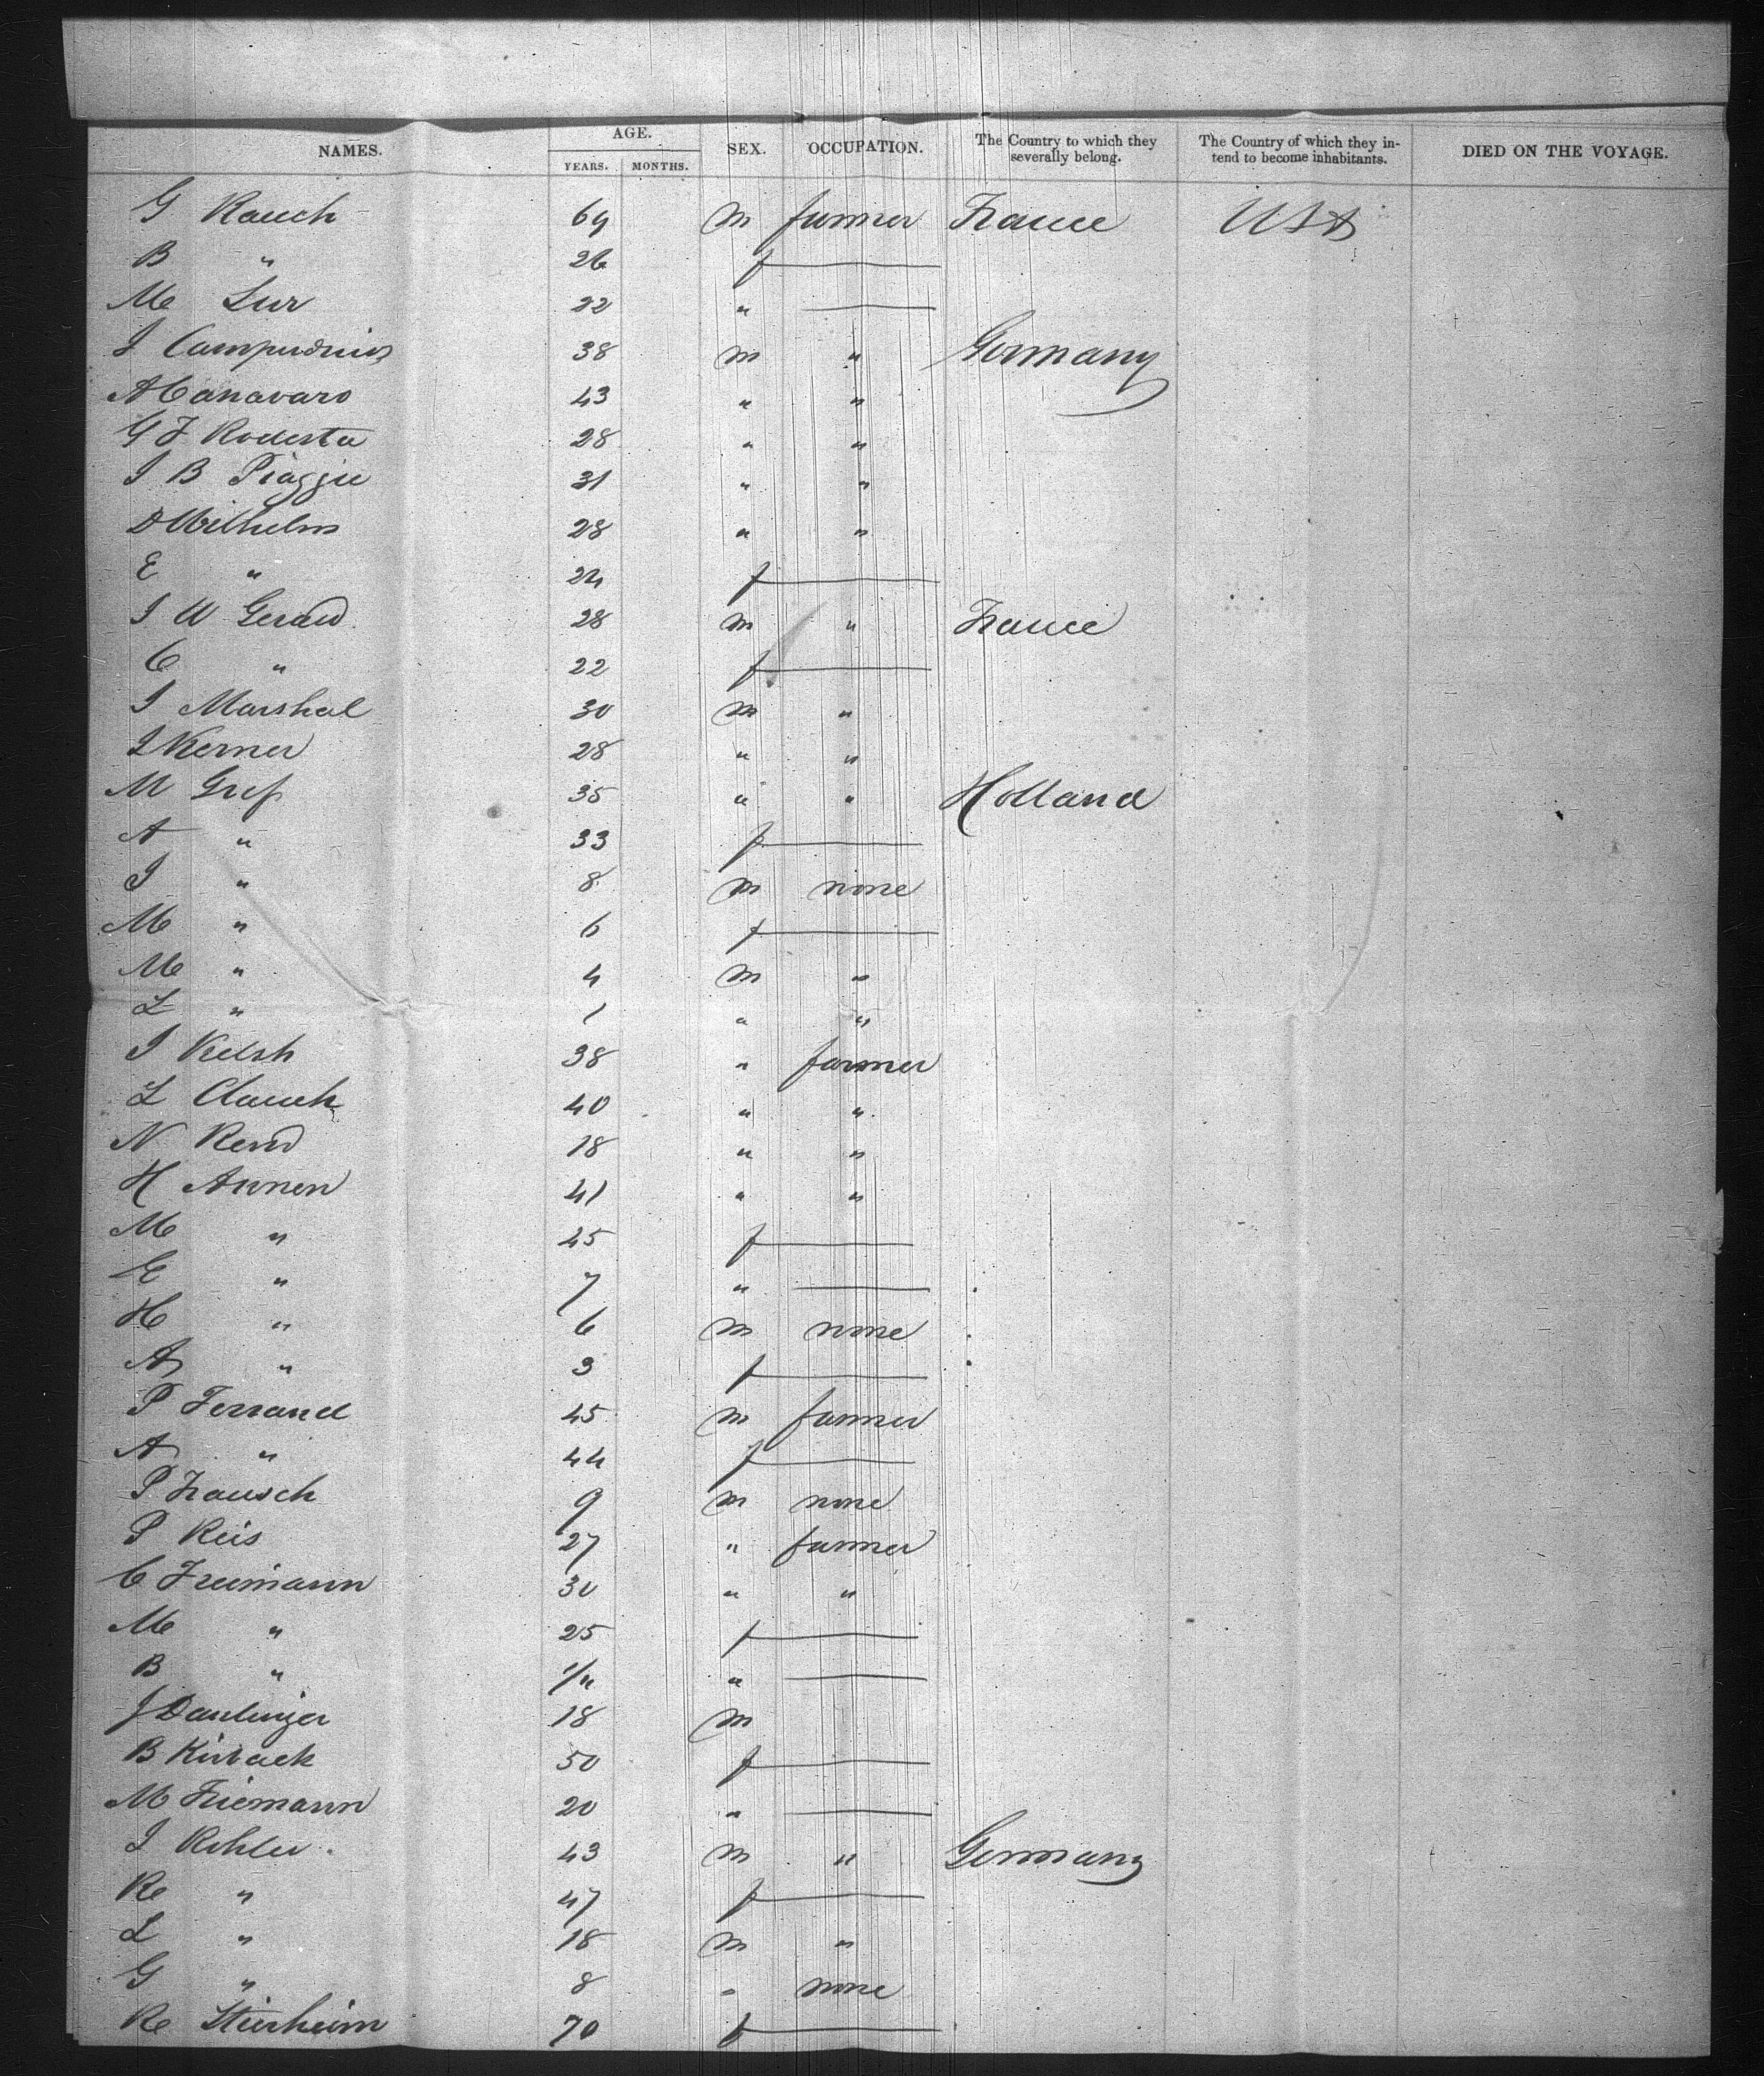 NAMES. AGE. YEARS. MONTHS. SEX. OCCUPATION. The Country to which they severally belong. The Country of which they intend to become inhabitants. DIED ON THE VOYAGE.
G Rauch 69 m farmer France USA
B " 26 f
M Lur 22 "
J 38 m " Germany
A Canavaro 43 " "
G F Rodesta 28 " "
J B Piaggie 31 " "
D Wilhelm 28 " "
E " 24 f
J W Gerard 28 m " France
C " 22 f
J Marshal 30 m "
J Kerner 28 " "
M Gref 35 " " Holland
A " 33 f
J " 8 m none
M " 6 f
M " 4 m "
L " 1 " "
J Kelsh 38 " farmer
L Clauch 40 " "
N 18 " "
H Annen 41 " "
M " 45 f
E " 7 "
H " 6 m none
A " 3 f
P Ferrand 45 m farmer
A " 44 f
P Frausch 9 m none
P Reis 27 " farmer
C Freimann 30 " "
M " 25 f
B " "
J Daulinger 18 m
B Kirback 50 f
M Friemann 20 "
J Kohler 43 m " Germany
K " 47 f
L " 18 m "
G " 8 " none
K Stierheim 70 f